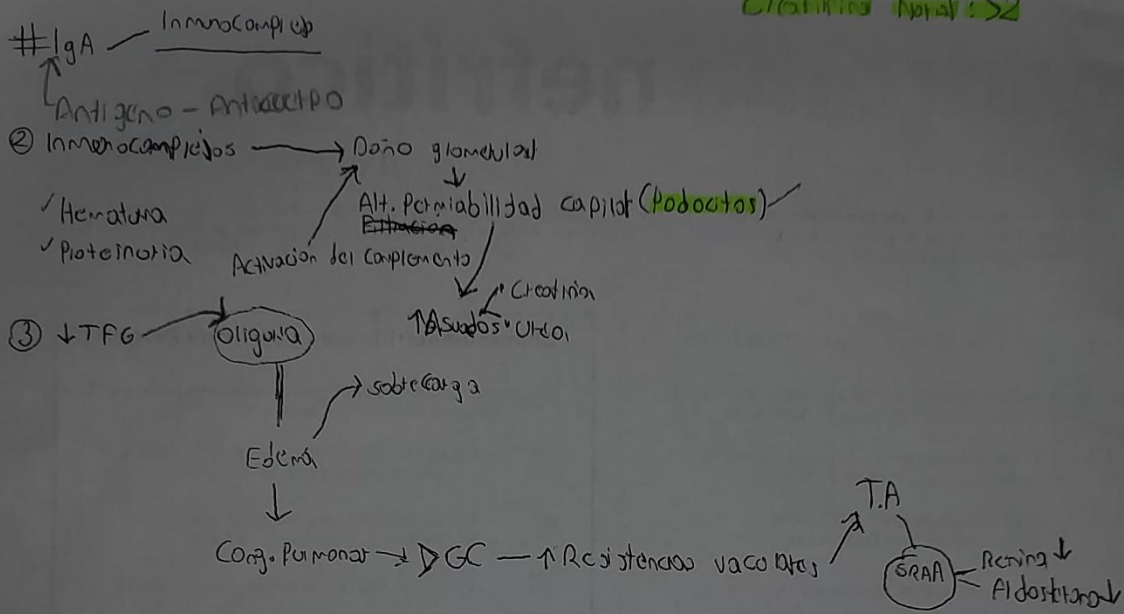 Creatinina Normal: >2
#IgA — Inmunocomplejo
Antigeno - Anticuerpo
② Inmunocomplejos → Daño glomerular
✓ Hematuria
✓ Proteinuria
Alt. Permiabilidad capilar (Podocitos)
Filtracion
Activacion del complemento
• Creatinin
↑Asuados • Urea
③ ↓ TFG → Oliguria
→ sobrecarga
Edema
T.A
Cong. Pulmonar → GC — ↑ Resistencias vaculares
SRAA
Renina ↓
Aldosterona ↓
nefritico